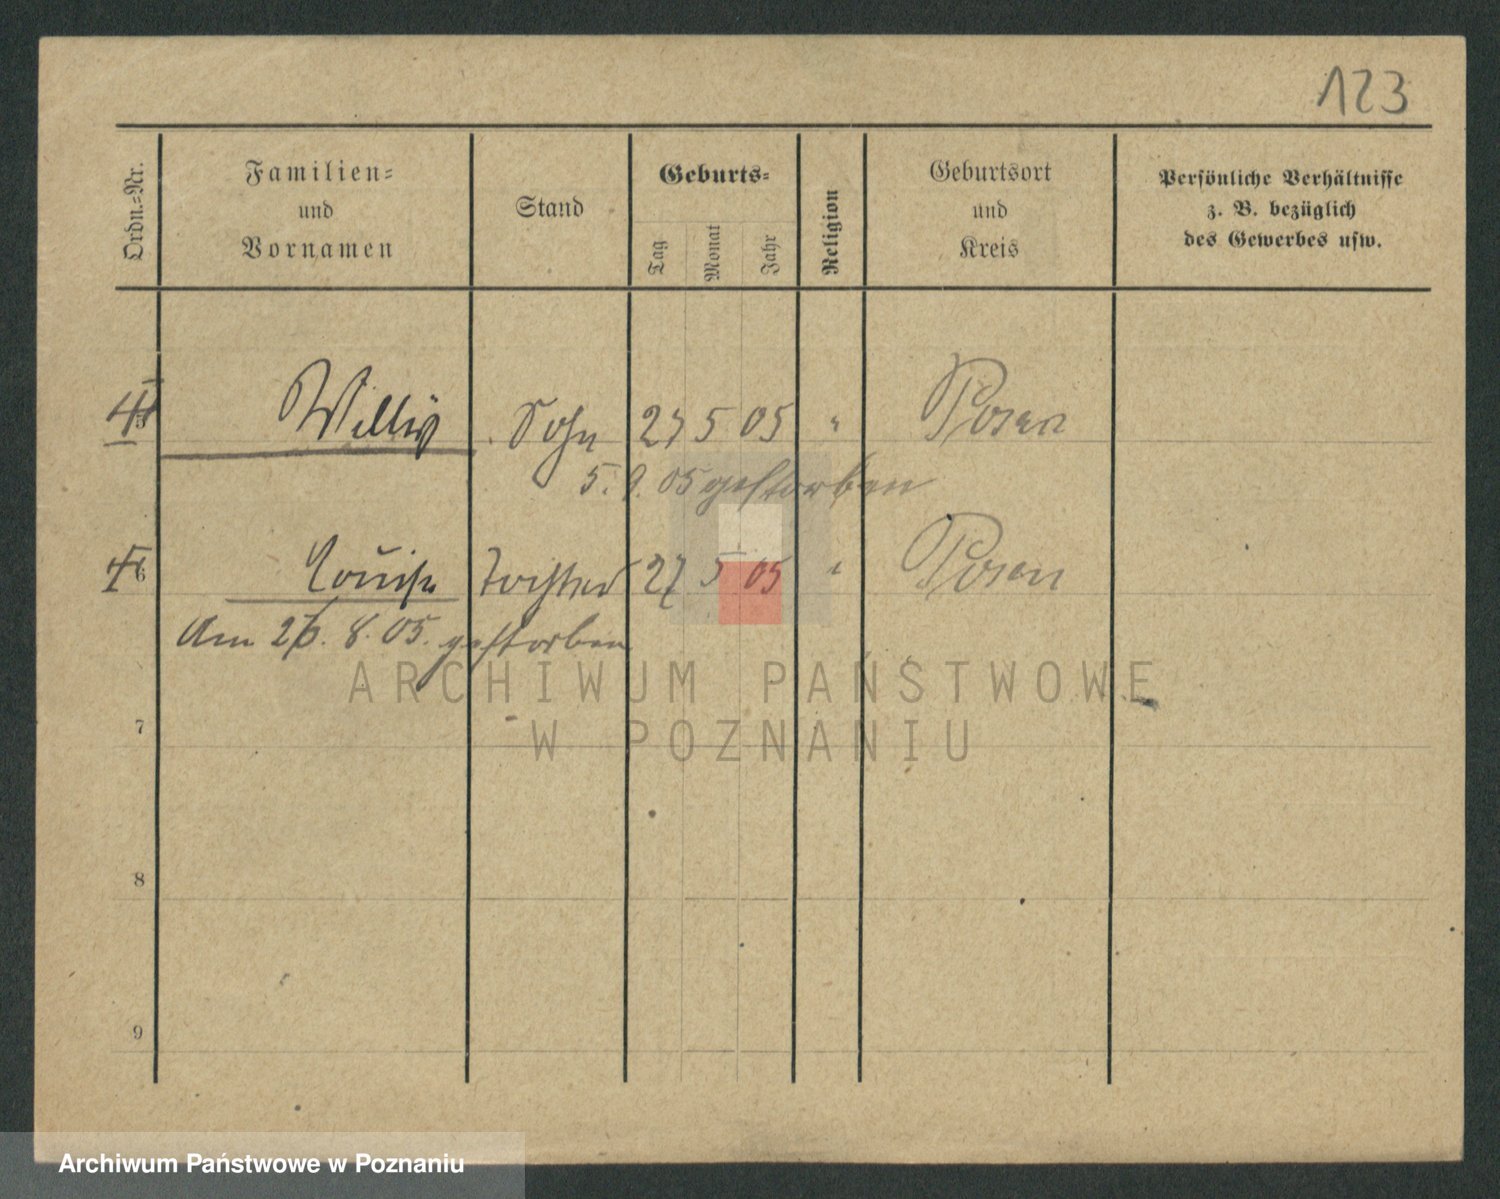 123
Ordn.-Nr.
Familien-
und
Vornamen
Stand
Geburts-
Tag
Monat
Jahr
Religion
Geburtsort
und
Kreis
Persönliche Verhältnisse
z. B. bezüglich
des Gewerbes usw.
5 Willy Sohn 27 5 05 " Posen
5. 9. 05 gestorben
6 Louise Tochter 27 5 05 " Posen
Am 26. 8. 05. gestorben
ARCHIWUM PAŃSTWOWE
W POZNANIU
7
8
9
Archiwum Państwowe w Poznaniu